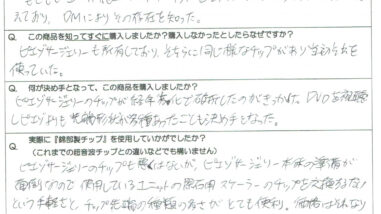 ており、DMによりその存在を知った。
Q. この商品を知ってすぐに購入しましたか?購入しなかったとしたらなぜですか?
ピエゾサージェリーも所有しており、そちらに同じ様なチップがあり当初は
使っていた。
Q. 何が決め手となって、この商品を購入しましたか?
ピエゾサージェリーのチップが経年劣化で破折したのがきっかけ。DVDを視聴
しピエゾよりも先端形状が多種あったことも決め手となった。
Q. 実際に『銘部製チップ』を使用していかがでしたか?
(これまでの超音波チップとの違いなどでも構いません)
ピエゾサージェリーのチップも悪くはないが、ピエゾサージェリー本体の準備が
面倒なので 使用しているユニットの歯石用スケーラーのチップを交換するだけ
という手軽さと、チップ先端の種類の多さがとても便利。価格は